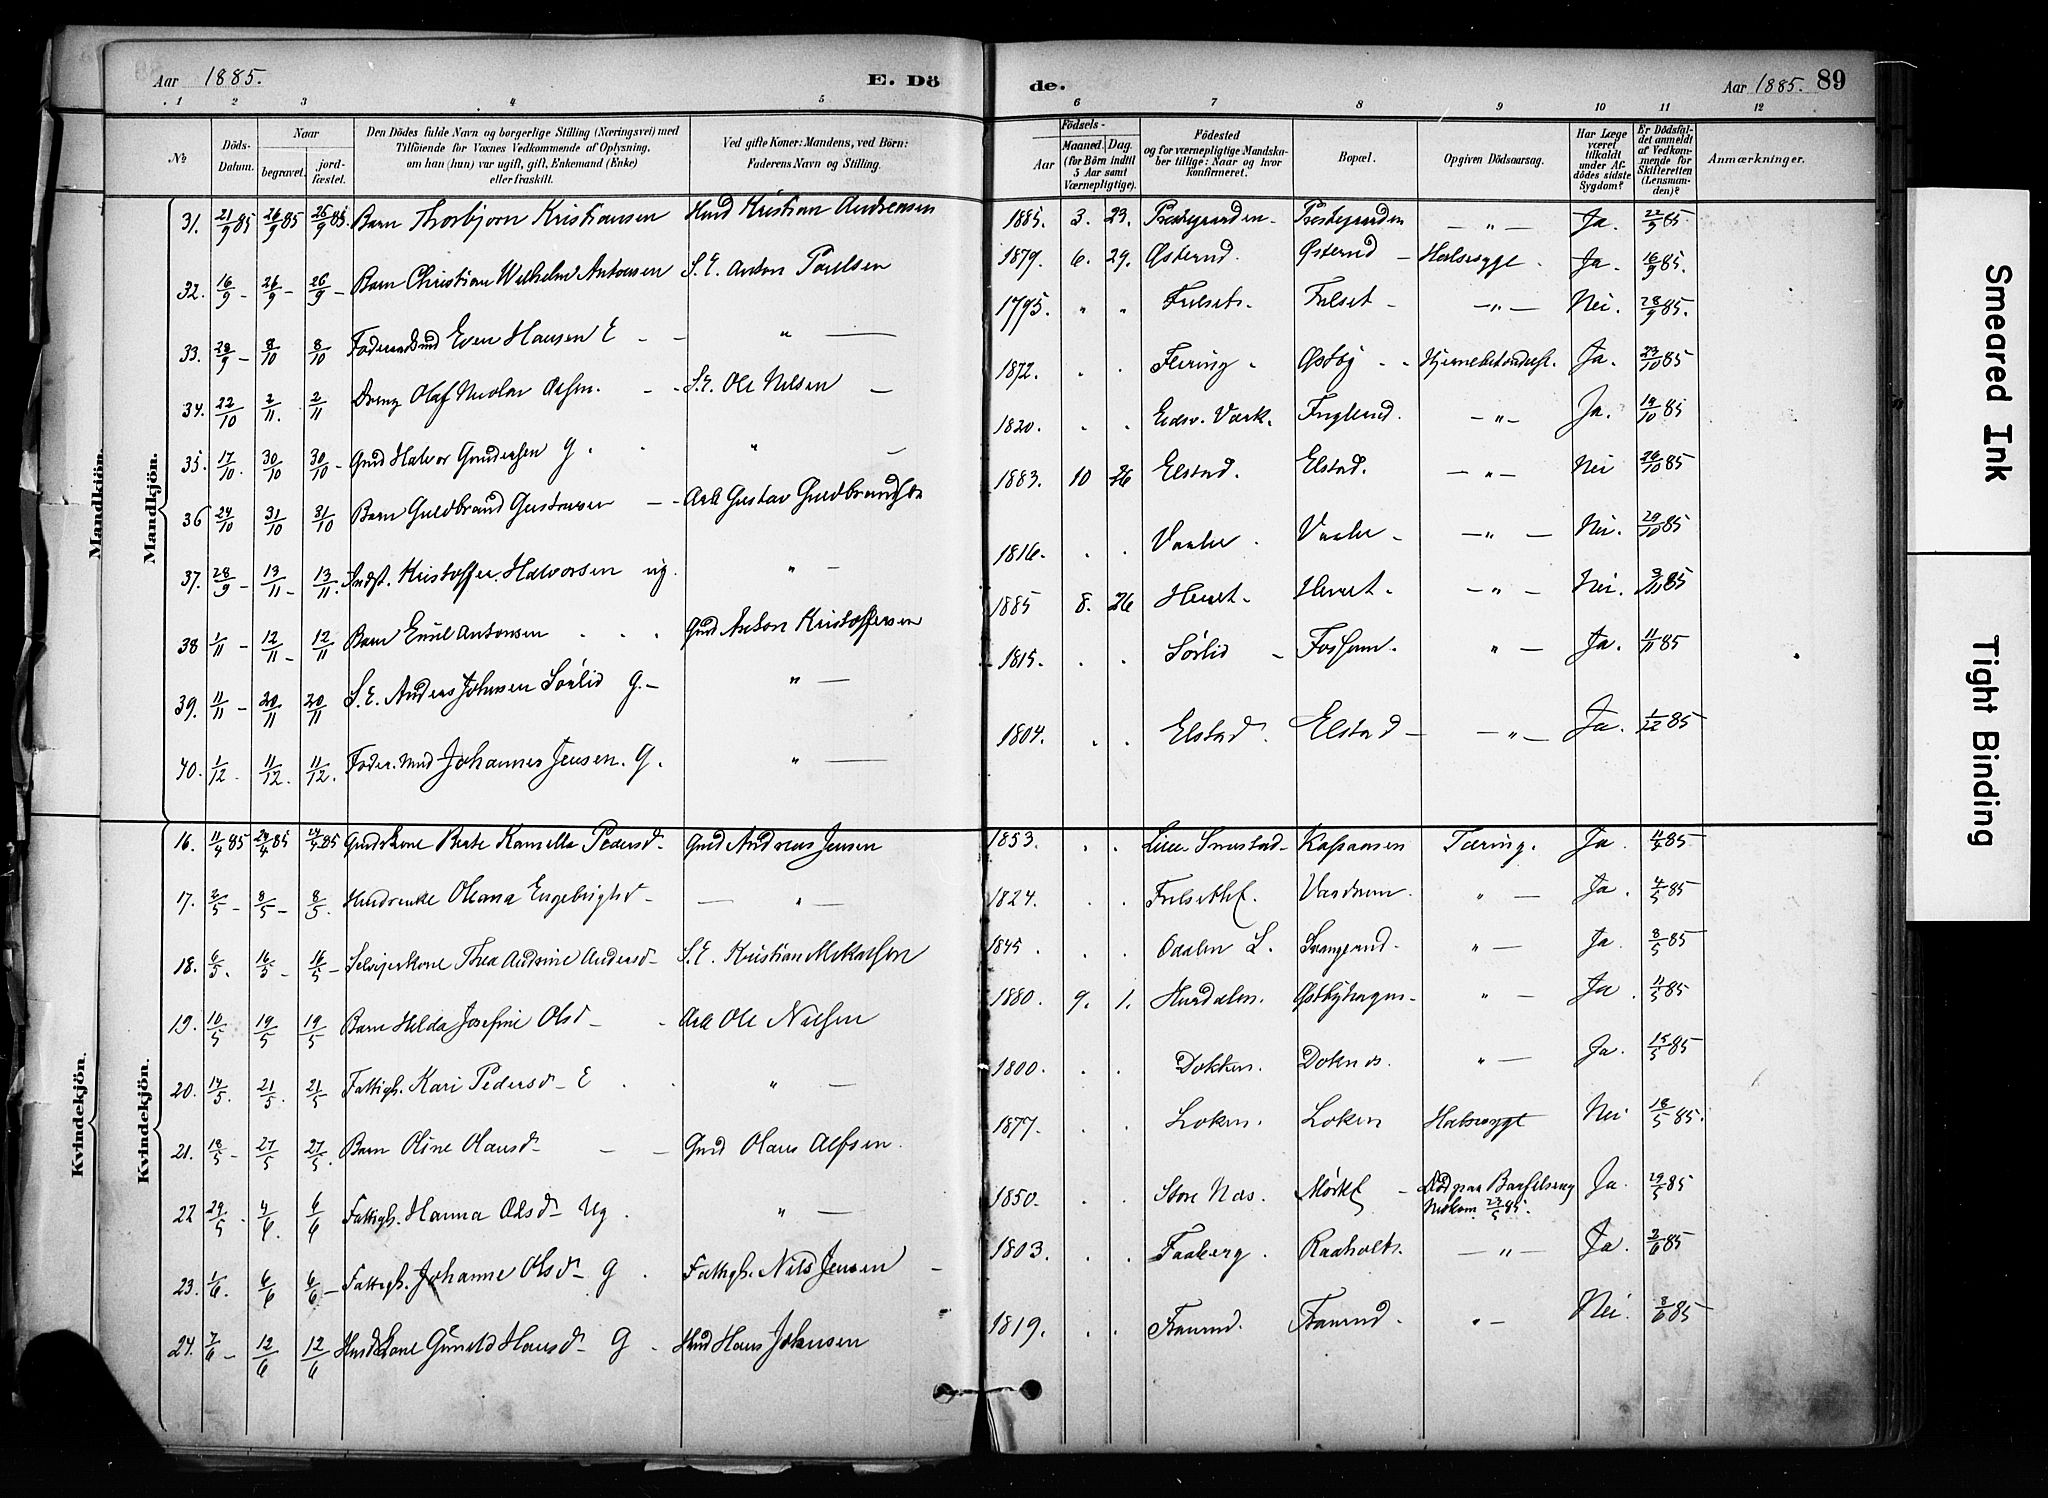 Aar 1885. E. Dö de. Aar 1885. 89
1 2 3 4 5 6 7 8 9 10 11 12
No Döds-Datum. Naar begravet. jordfæstet. Den Dödes fulde Navn og borgerlige Stilling (Næringsvei) med Tilföiende for Voxnes Vedkommende af Oplysning, om han (hun) var ugift, gift, Enkemand (Enke) eller fraskilt. Ved gifte Koner: Mandens, ved Börn: Faderens Navn og Stilling. Födsels- Aar Maaned. Dag. (for Börn indtil 5 Aar samt Værnepligtige). Födested og for værnepligtige Mandskaber tillige: Naar og hvor konfirmeret. Bopæl. Opgiven Dödsaarsag. Har Læge været tilkaldt under Afdödes sidste Sygdom? Er Dödsfaldet anmeldt af Vedkommende for Skifteretten (Lensmanden)? Anmærkninger.
Mandkjön.
Mandkjön.
31. 21/9 85 26/9 85 26/9 85. Barn Thorbjørn Kristiansen Hmd Kristian Andreasen 1885. 3. 23. Præstegaarden - Præstegaarden — " — Ja. 22/9 85
32. 16/9 - 26/9 - 26/9 - Barn Christian Wilhelm Antonsen S.E. Anton Paulsen 1879. 6. 29. Østerud. Østerud - Halssyge. Ja. 16/9 85.
33. 28/9 - 8/10 8/10 Even Hansen E - - " — 1795. " " Frilset - Frilset - — " — Nei. 28/9 85.
34. 22/10 2/11. 2/11 Dreng Olaf Nicolai Olsen. - - S.E. Ole Nilsen — 1872. . . Feiring - Østby - Ja. 23/10 85
35. 17/10. 30/10 30/10 - Gmd Halvor Gundersen G. " — 1820. . . Eidsv. Værk. Englund. - " - Ja. 19/10 85
36 24/10 31/10 31/10 Barn Guldbrand Gustavsen - - Arb Gustav Guldbrandsen 1883. 10 26 Elstad. Elstad. — " — Nei 26/10 85
37. 28/9 - 13/11 - 13/11. Kristoffer Halvorsen ug. " — 1816. . . Vaaler. Vaaler - — " — Nei. 29/10 85
38 1/11 - 12/11 - 12/11 Barn Emil Antonsen . . . Gmd Anton Kristoffersen 1885 8. 26 - " - Nei. 9/11 85
39. 11/11 - 20/11 20/11 S.E. Anders Johnsen Sørlid G. - " — 1815. . . Sørlid - " — Ja. 11/11 85
40. 1/12. 11/12. 11/12. Foder.md Johannes Jensen. G. " — 1804. . . Elstad. Elstad - - " — Ja. 1/12 85
Kvindekjön.
Kvindekjön.
16. 11/4 85 24/4 85 24/4 85 Gmdskone Berte Kamilla Pedersd - Gmd Andreas Jensen 1853. . . Tæring. Ja. 11/4 85.
17. 2/5 - 8/5 - 8/5. Oleana Engebrigtsd - — " — 1824. . . " — Ja. 4/5 85
18. 6/5. 16/5 - 16/5 - Selveierkone Thea Andrine Andersd - S.E. Kristian Mikalsen 1845 . . Odalen S. " — Ja. 8/5 85
19. 10/5 19/5 19/5 Barn Helda Josefine Olsd - - Arb Ole Nilsen 1880. 9. 1. Hurdalen. Østbyhagen - " — Ja. 11/5 85
20. 14/5. 21/5. 21/5 Fattigh. Kari Pedersd - E . . " — 1800. . . Dokken. " — Ja. 15/5 85
21. 18/5 - 27/5 27/5. Barn Oline Olausd - - - Gmd Olaus Alfsen. 1877. . . Loken. Loken Halssyge Nei 18/5 85.
22 29/5 - 4/6. 4/6 Fattigh. Hanna Olsd - Ug. " — 1850. . . Store Næs. Barselseng Nedkom. 23/5 85. Ja. 29/5 85
23. 1/6. 6/6 6/6 - Fattigh. Johanne Olsd - G . Fattigh. Nils Jensen - 1803. . . Faaberg. Raaholt. — " — Ja. 2/6 85
24. 7/6 - 12/6 12/6 Husmdskone Gunild Hansd - G . Hmd Hans Johansen 1819. . . " — Nei. 8/6 85
Smeared Ink
Tight Binding